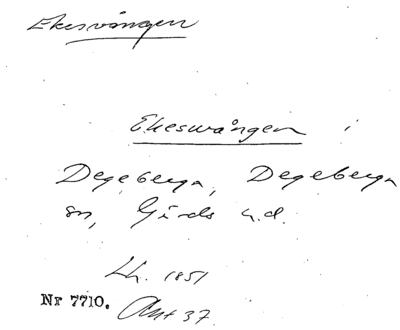 Ekesvången
Ekeswången i
Degeberga, Degeberga
sn, Gärds h.d.
Lh. 1851
Nr 7710. Akt 37